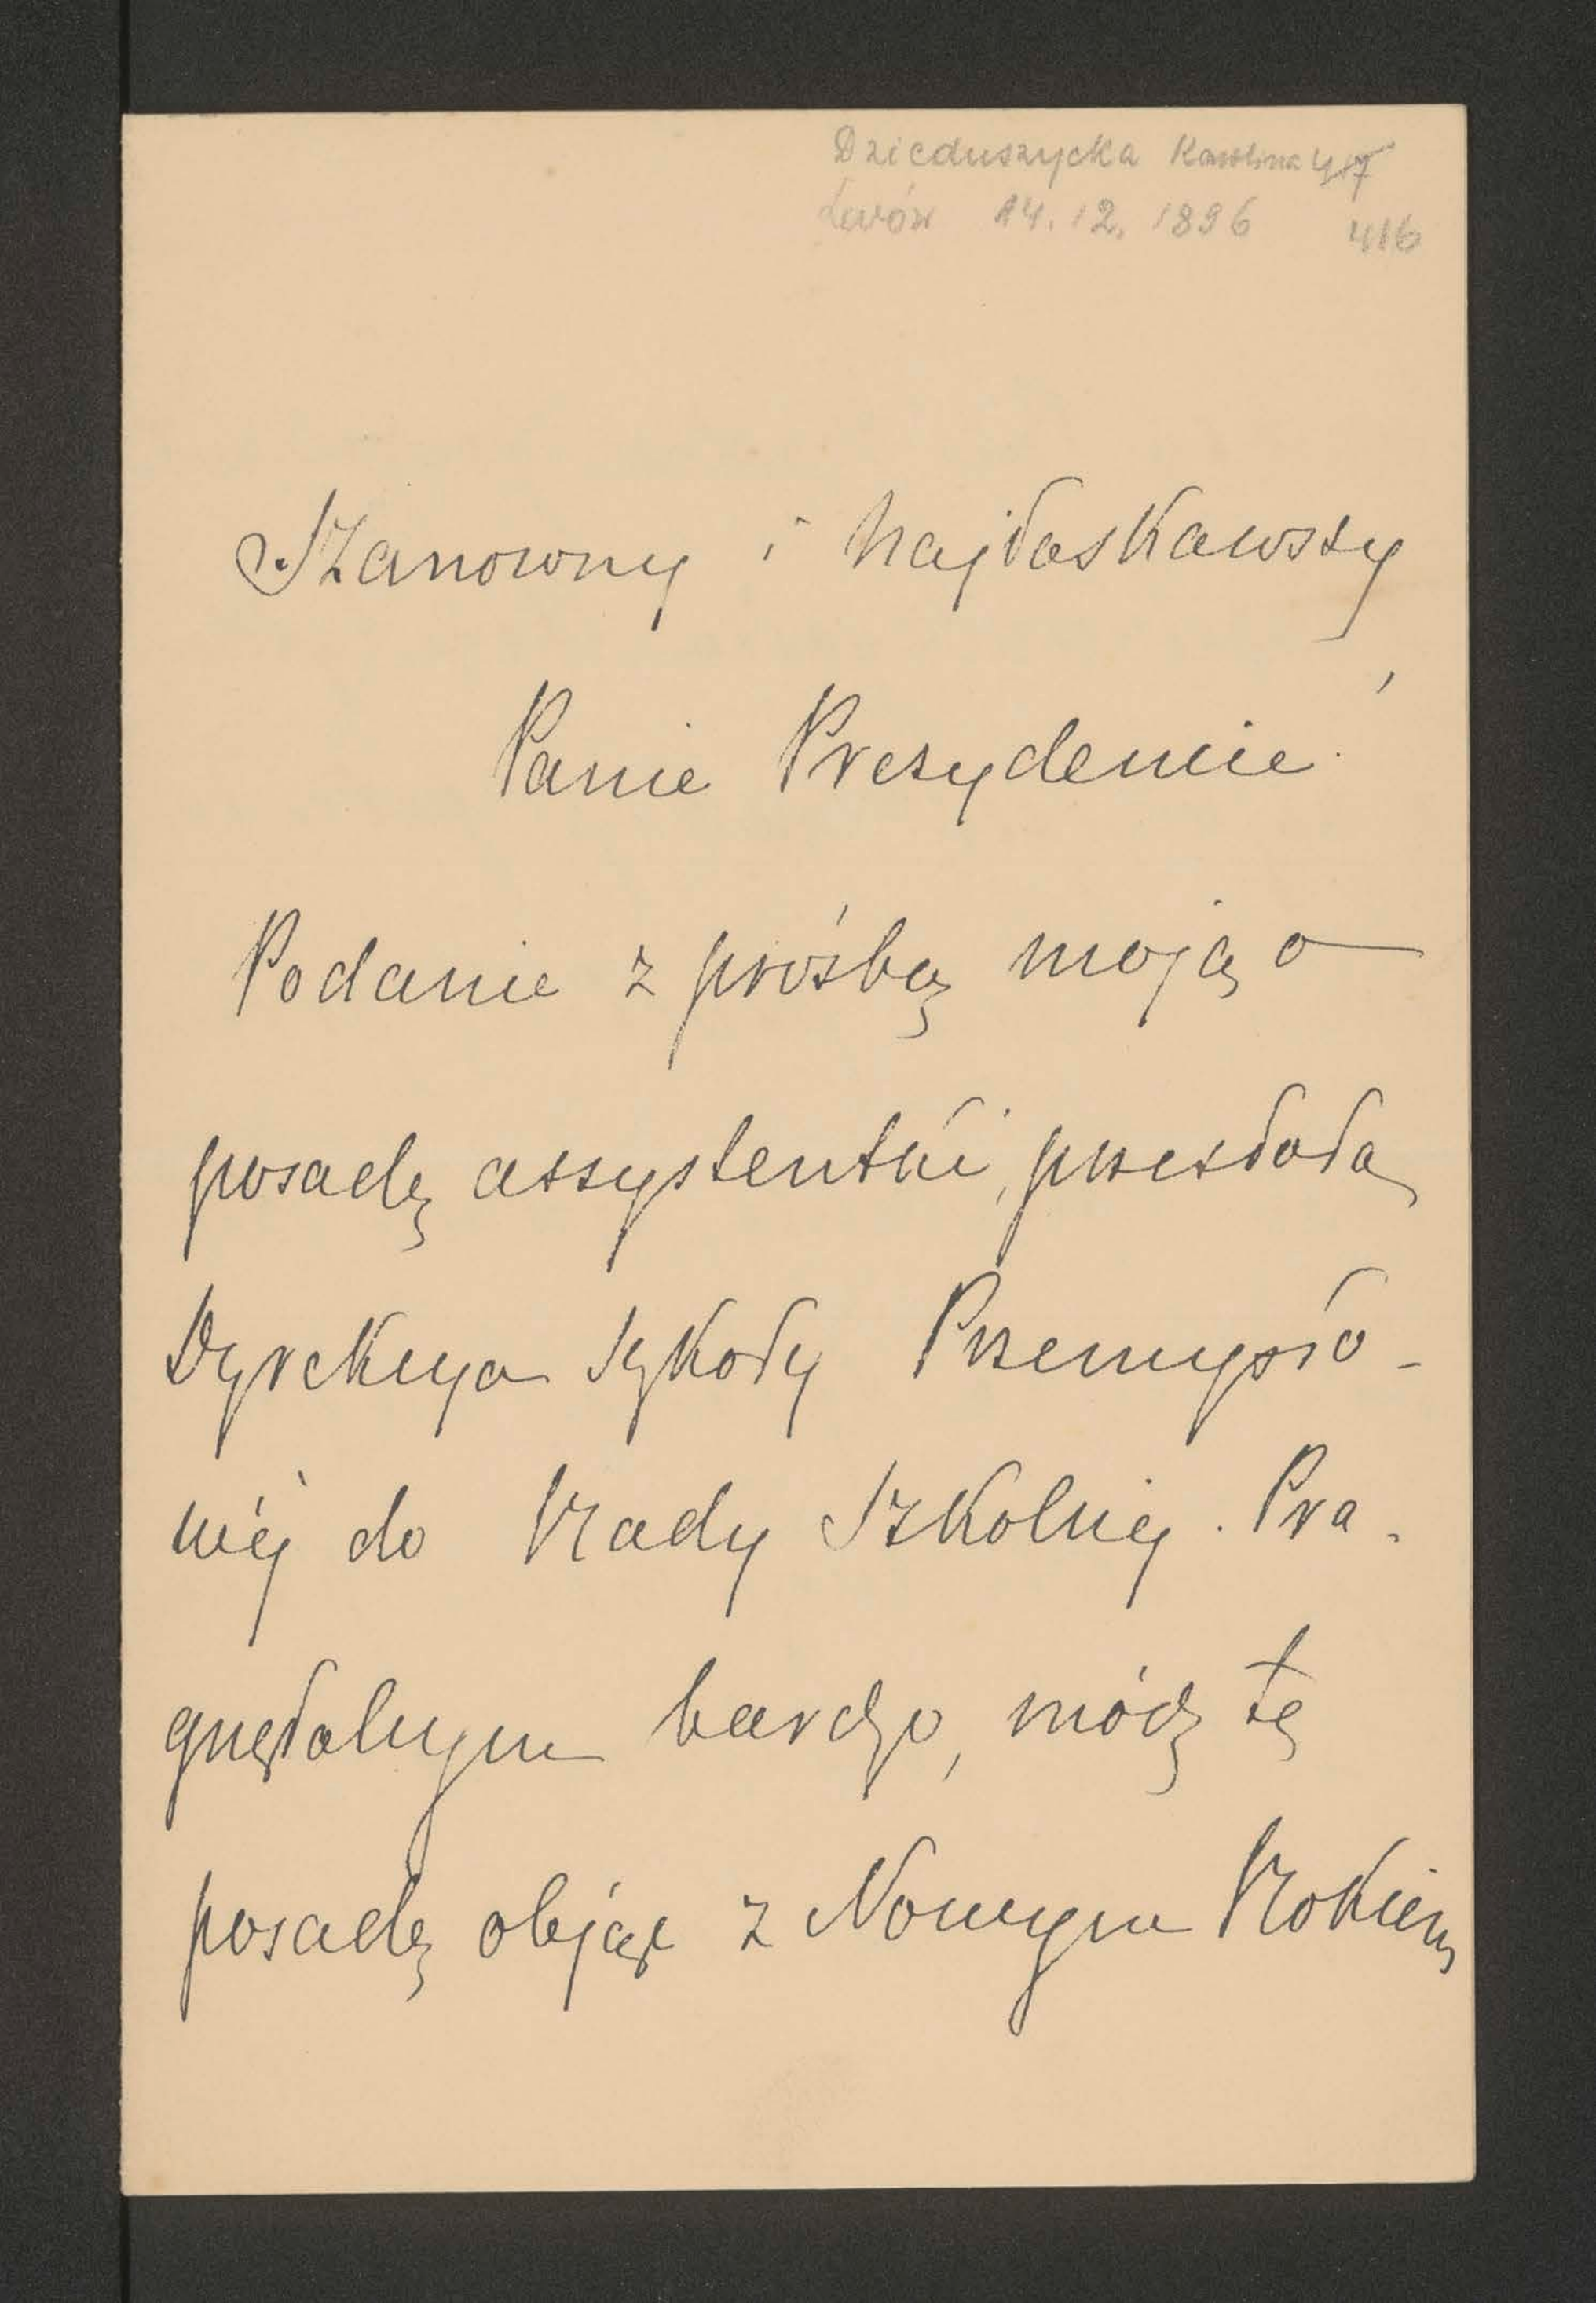 Dzieduszycka Karolina 417
Lwów 14.12.1896 416
Szanowny i Najłaskawszy
Panie Prezydencie!
Podanie z prośbą moją o
posadę assystentki, przesłała
Dyrekcya Szkoły Przemysło-
wéj do Rady Szkolnéj. Pra-
gnęłabym bardzo, módz tę
posadę objąć z Nowym Rokiem